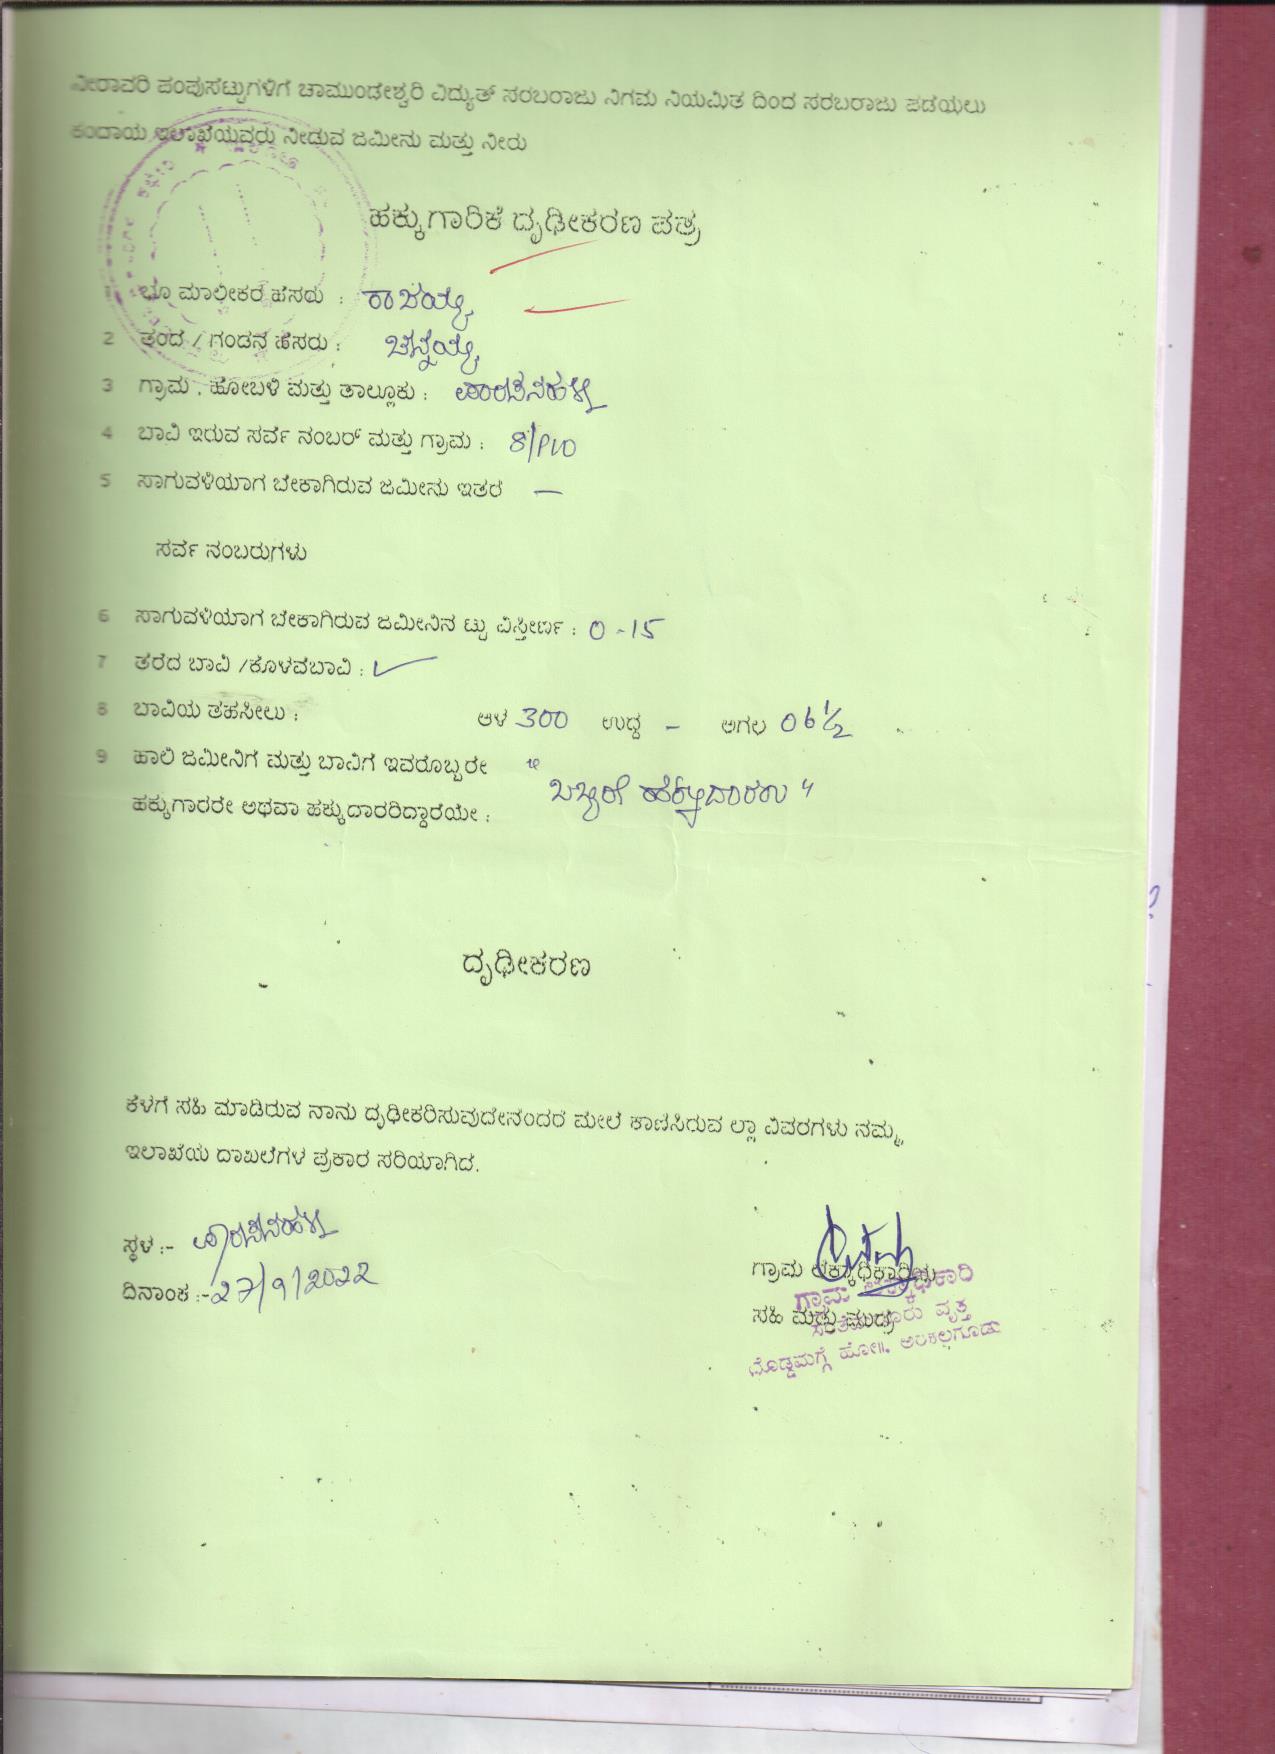 ನೀರಾವರಿ ಪಂಪುಸೆಟ್ಟುಗಳಿಗೆ ಚಾಮುಂಡೇಶ್ವರಿ ವಿದ್ಯುತ್ ಸರಬರಾಜು ನಿಗಮ ನಿಯಮಿತ ದಿಂದ ಸರಬರಾಜು ಪಡೆಯಲು
ಕಂದಾಯ ಇಲಾಖೆಯವರು ನೀಡುವ ಜಮೀನು ಮತ್ತು ನೀರು
ಹಕ್ಕುಗಾರಿಕೆ ದೃಢೀಕರಣ ಪತ್ರ
1 ಭೂ ಮಾಲೀಕರ ಹೆಸರು : ರಾಜಯ್ಯ
2 ತಂದೆ / ಗಂಡನ ಹೆಸರು : ಚನ್ನಯ್ಯ
3 ಗ್ರಾಮ . ಹೋಬಳಿ ಮತ್ತು ತಾಲ್ಲೂಕು :
4 ಬಾವಿ ಇರುವ ಸರ್ವೆ ನಂಬರ್ ಮತ್ತು ಗ್ರಾಮ : 8/P10
5 ಸಾಗುವಳಿಯಾಗ ಬೇಕಾಗಿರುವ ಜಮೀನು ಇತರ —
ಸರ್ವೆ ನಂಬರುಗಳು
6 ಸಾಗುವಳಿಯಾಗ ಬೇಕಾಗಿರುವ ಜಮೀನಿನ ಟ್ಟು ವಿಸ್ತೀರ್ಣ : 0-15
7 ತೆರೆದ ಬಾವಿ /ಕೊಳವೆಬಾವಿ : ✓
8 ಬಾವಿಯ ತಹಸೀಲು : ಆಳ 300 ಉದ್ದ – ಅಗಲ 06½
9 ಹಾಲಿ ಜಮೀನಿಗೆ ಮತ್ತು ಬಾವಿಗೆ ಇವರೊಬ್ಬರೇ " ಒಬ್ಬರೇ ಹಕ್ಕುದಾರರು "
ಹಕ್ಕುಗಾರರೇ ಅಥವಾ ಹಕ್ಕುದಾರರಿದ್ದಾರೆಯೇ :
ದೃಢೀಕರಣ
ಕೆಳಗೆ ಸಹಿ ಮಾಡಿರುವ ನಾನು ದೃಢೀಕರಿಸುವುದೇನೆಂದರೆ ಮೇಲೆ ಕಾಣಿಸಿರುವ ಲ್ಲಾ ವಿವರಗಳು ನಮ್ಮ
ಇಲಾಖೆಯ ದಾಖಲೆಗಳ ಪ್ರಕಾರ ಸರಿಯಾಗಿದೆ.
ಸ್ಥಳ :-
ದಿನಾಂಕ :- 27/9/2022
ಗ್ರಾಮ ಲೆಕ್ಕಾಧಿಕಾರಿಯ
ಸಹಿ ಮತ್ತು ಮುದ್ರೆ
ಗ್ರಾಮ ಲೆಕ್ಕಾಧಿಕಾರಿ
ವೃತ್ತ
ದೊಡ್ಡಮಗ್ಗೆ ಹೋ॥. ಅರಕಲಗೂಡು